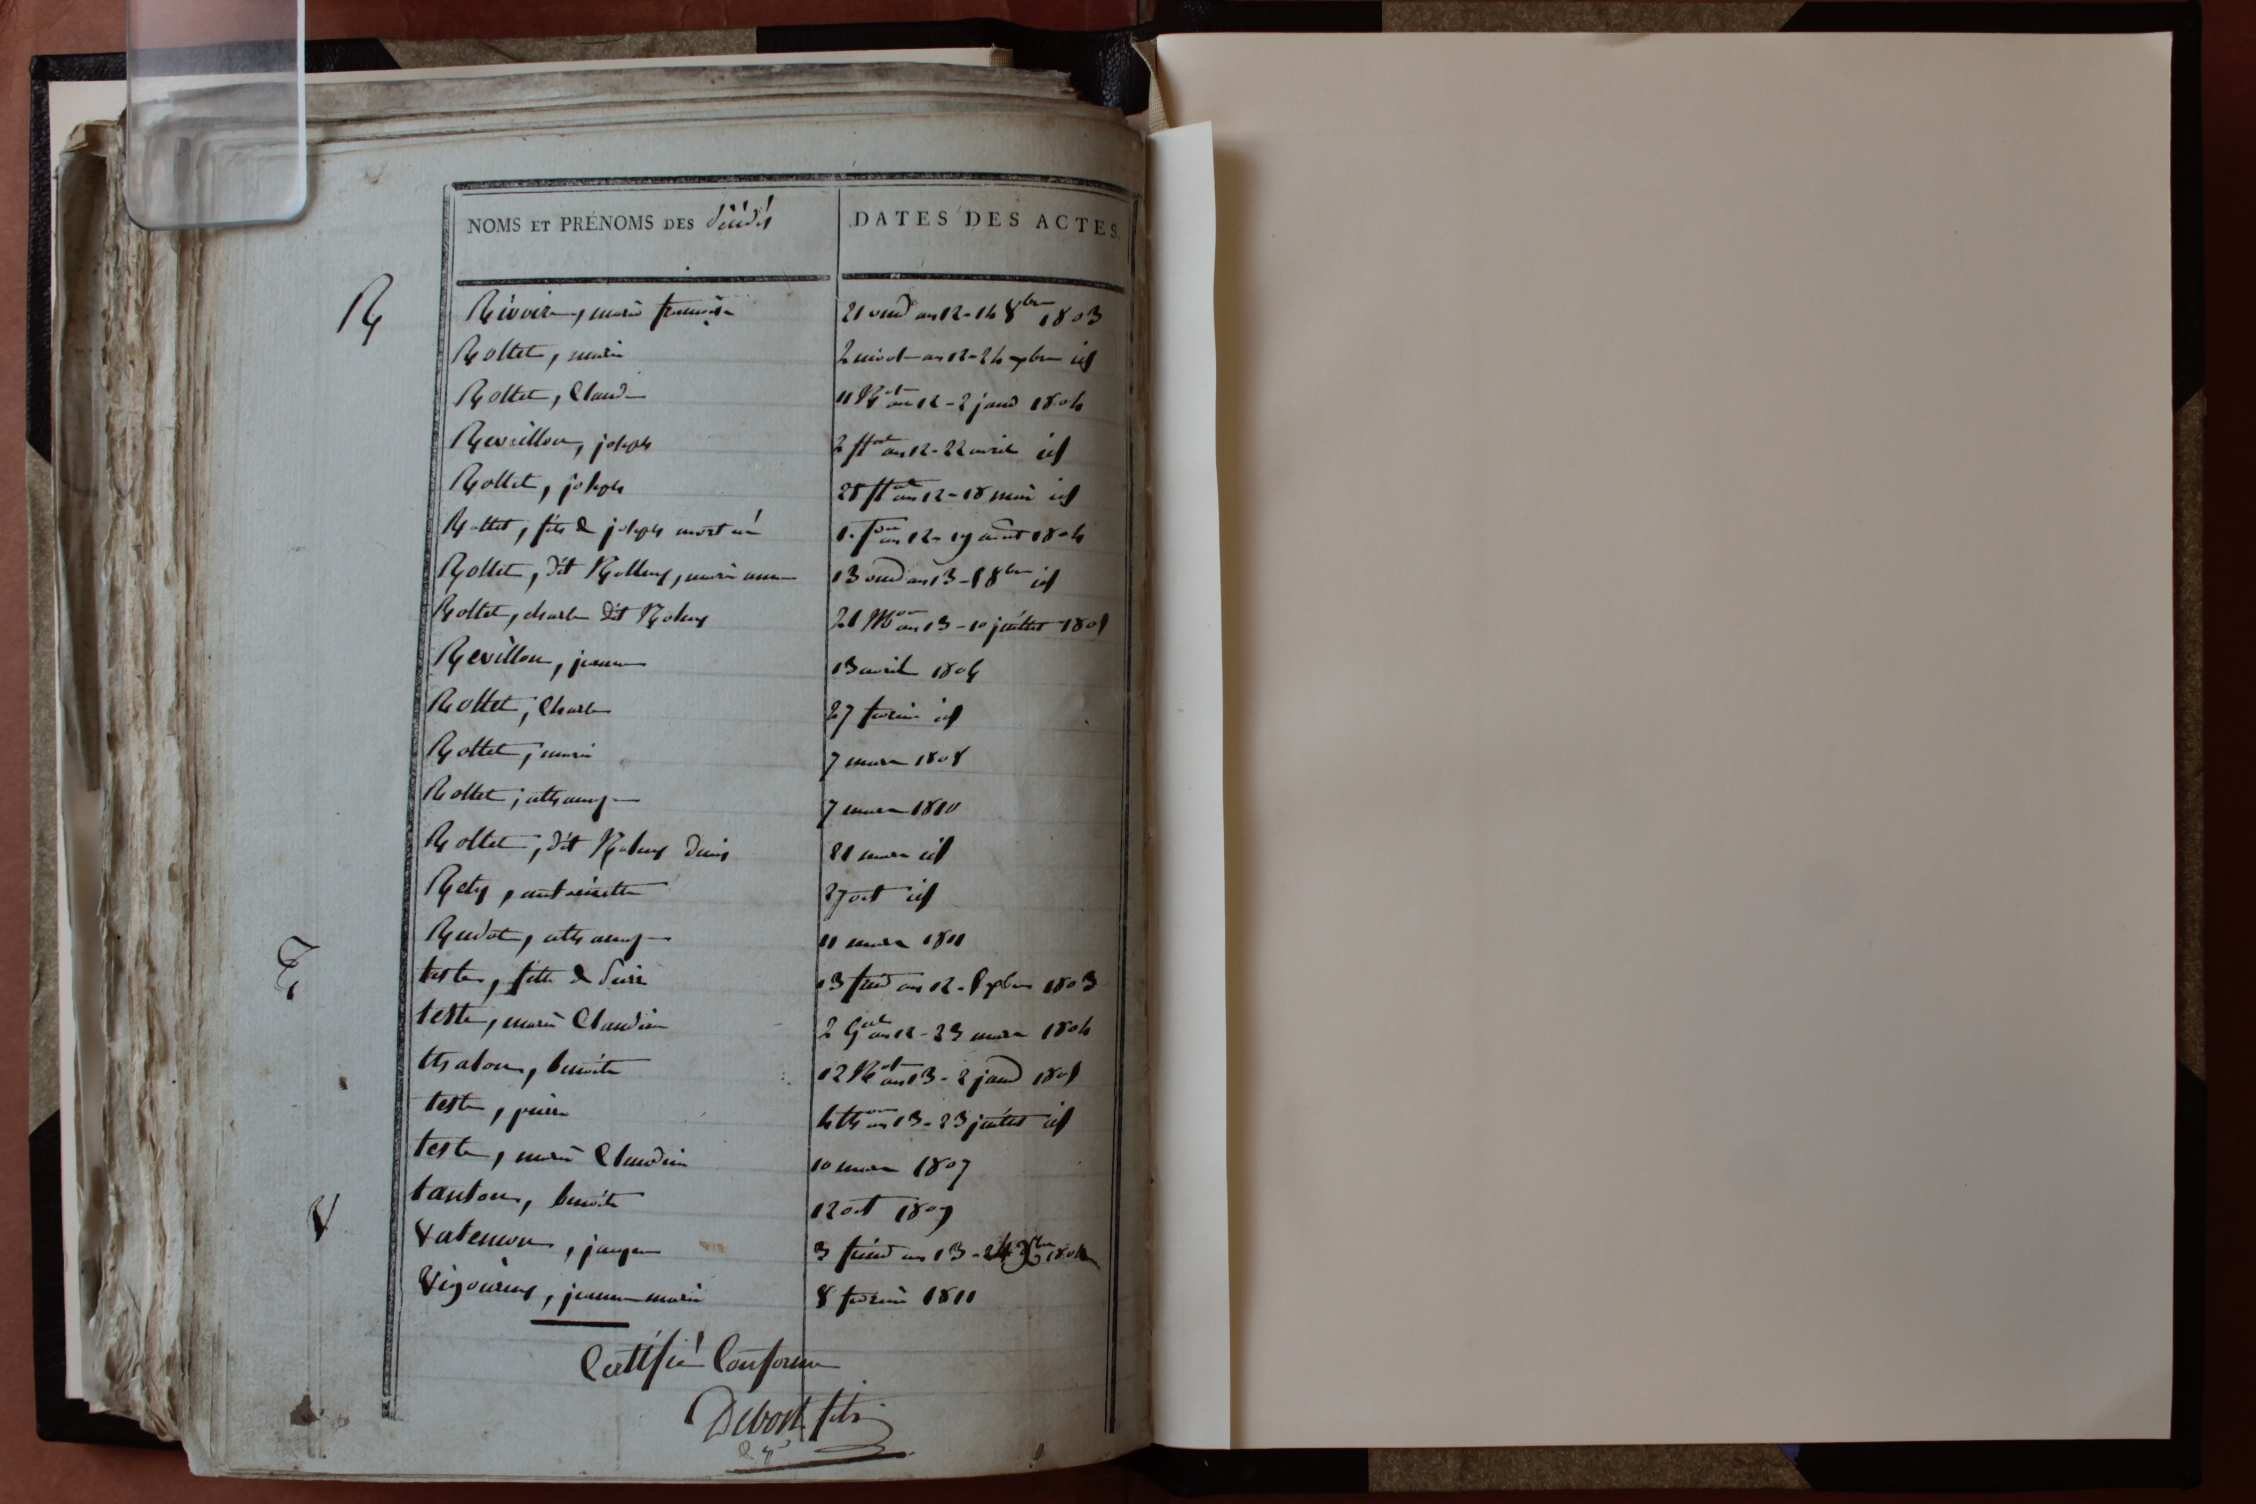 NOMS ET PRÉNOMS DES décédés DATES DES ACTES.
R
Rivoire, marie françoise 21 vend an 12 - 14 8bre 1803
Rollet, marie 2 nivot an 12 - 24 xbre id
Rollet, Claude 11 N an 12 - 2 janv 1804
Revillon, joseph 2 fl an 12 - 22 avril id
Rollet, joseph 28 fl an 12 - 18 mai id
Rollet, fils de joseph mort né 1. f an 12 - 19 août 1804
Rollet, dit, marie anne 13 vend an 13 - 5 8bre id
Rollet, charle dit 21 M an 13 - 10 juillet 1805
Revillon, jeanne 13 avril 1806
Rollet, Charle 27 fevrier id
Rollet, marie 7 mars 1808
Rollet, 7 mars 1810
Rollet, dit denis 21 mars id
Rety, antoinette 27 oct id
Rudot, 11 mars 1811
T
teste, fille de 13 frim an 12 - 5 xbre 1803
teste, marie Claudine 2 G an 12 - 23 mars 1804
benoite 12 N an 13 - 2 janv 1805
teste, pierre 4 th an 13 - 23 juillet id
teste, marie Claudine 10 mars 1807
tanton, benoite 12 oct 1809
V
3 frim an 13 - 24 1804
jeanne marie 8 fevrier 1811
Certifié Conforme
Debost fils